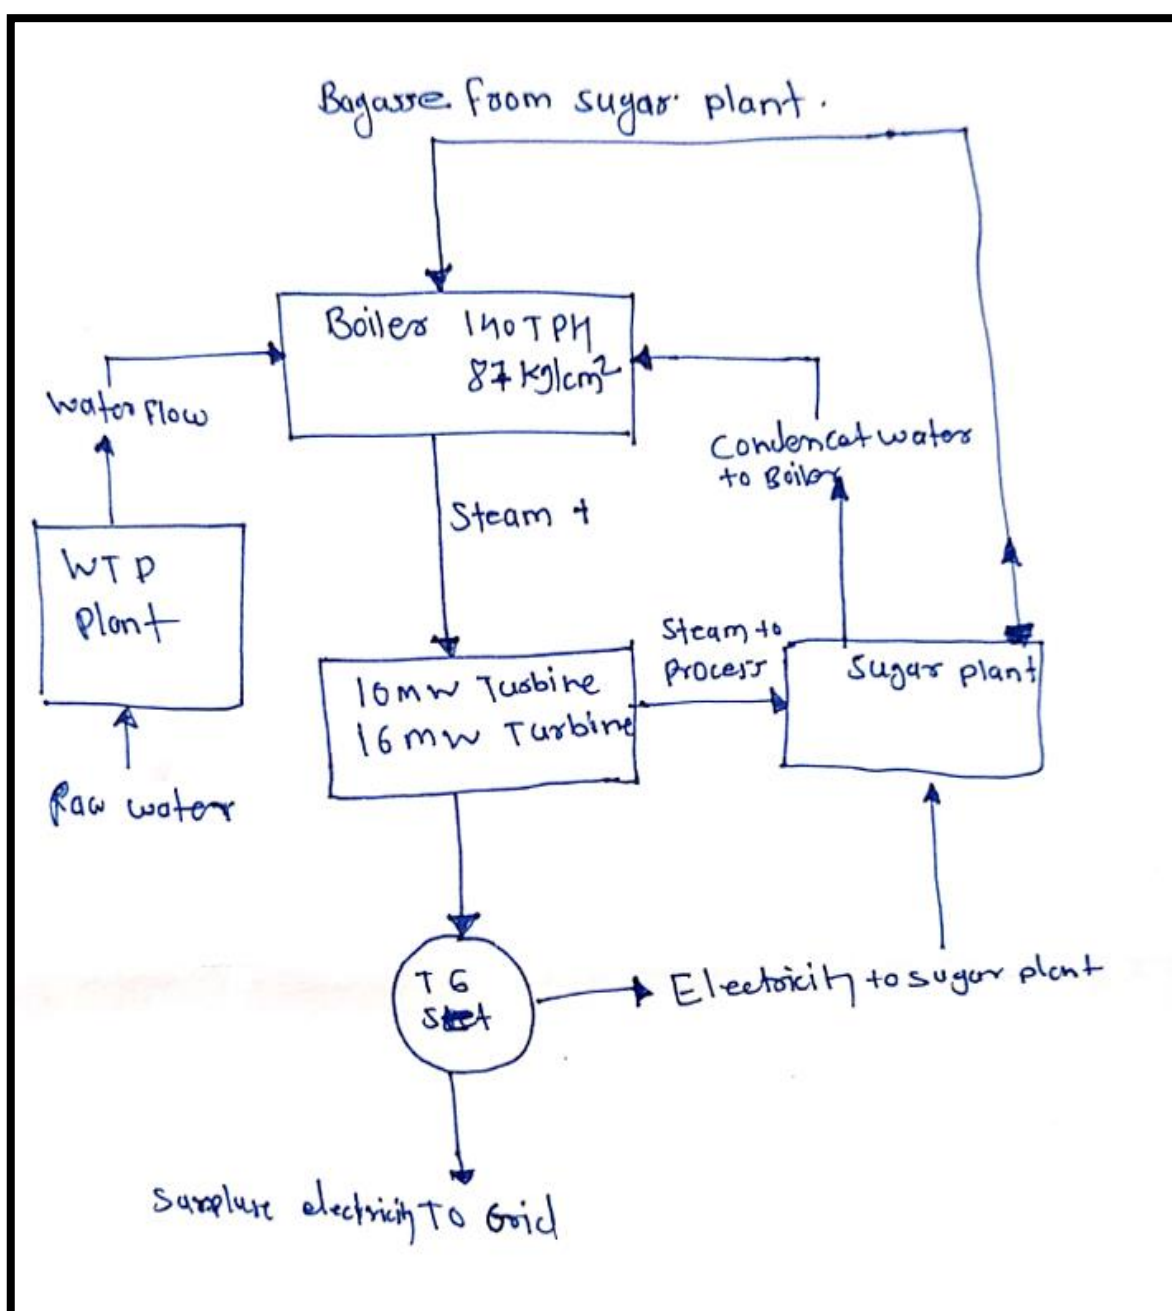 Bagasse from sugar plant.
Boiler 140 TPH
87 kg/cm²
Water flow
Condencat water
to Boiler
Steam t
WTP
Plant
Steam to
process
10 MW Turbine
16 MW Turbine
Sugar plant
Raw water
TG
Set
Electricity to sugar plant
Surpluse electricity To Grid